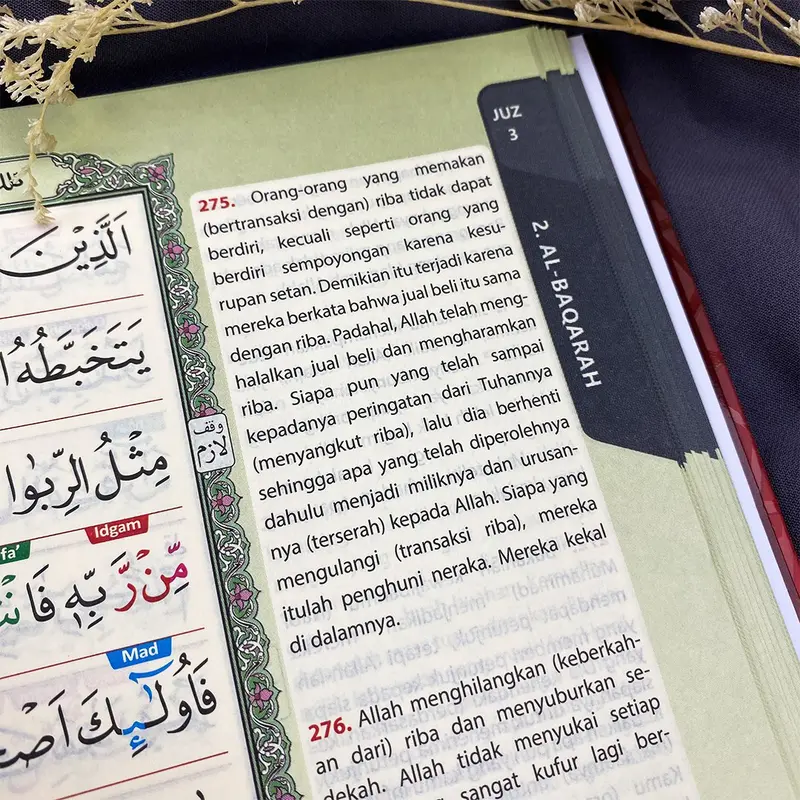 JUZ
3
2. AL-BAQARAH
275. Orang-orang yang memakan
(bertransaksi dengan) riba tidak dapat
berdiri, kecuali seperti orang yang
berdiri sempoyongan karena kesu-
rupan setan. Demikian itu terjadi karena
mereka berkata bahwa jual beli itu sama
dengan riba. Padahal, Allah telah meng-
halalkan jual beli dan mengharamkan
riba. Siapa pun yang telah sampai
kepadanya peringatan dari Tuhannya
(menyangkut riba), lalu dia berhenti
sehingga apa yang telah diperolehnya
dahulu menjadi miliknya dan urusan-
nya (terserah) kepada Allah. Siapa yang
mengulangi (transaksi riba), mereka
itulah penghuni neraka. Mereka kekal
di dalamnya.
276. Allah menghilangkan (keberkah-
an dari) riba dan menyuburkan se-
dekah. Allah tidak menyukai setiap
sangat kufur lagi ber-
اَلَّذِيْنَ
يَتَخَبَّطُهُ
مِثْلُ الرِّبٰوا
وقف
لازم
Idgam
مِّنْ رَّبِّهٖ
Mad
فَاُولٰۤىِٕكَ